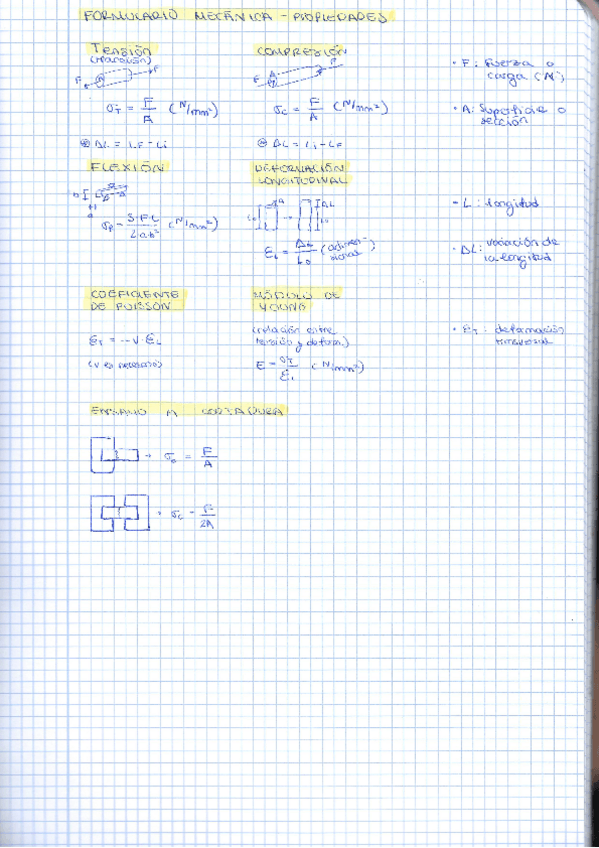 FORMULARIO MECÁNICA - PROPIEDADES
TENSIÓN
(tracción)
F A F
σT = F/A (N/mm²)
⊕ ΔL = LF - Li
COMPRESIÓN
F A F
σc = F/A (N/mm²)
⊖ ΔL = Li - LF
· F: fuerza o
carga (N)
· A: Superficie o
sección
FLEXIÓN
b L
a
σF = 3·F·L/2ab² (N/mm²)
DEFORMACIÓN
LONGITUDINAL
εL = ΔL/L0 (adimen-
sional)
· L: longitud
· ΔL: variación de
la longitud
COEFICIENTE
DE POISSON
εT = -ν·εL
(ν es
MÓDULO DE
YOUNG
(relación entre
tensión y deform.)
E = σT/εL (N/mm²)
· εT: deformación
transversal
ENSAYO A CORTADURA
→ σc = F/A
→ σc = F/2A